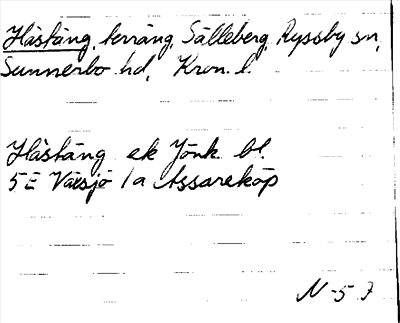 Håstång, terräng, Sälleberg, Ryssby sn,
Sunnerbo hd, Kron. l.
Håstång ek Jönk. bl.
5E Växsjö 1a Assareköp
N-57